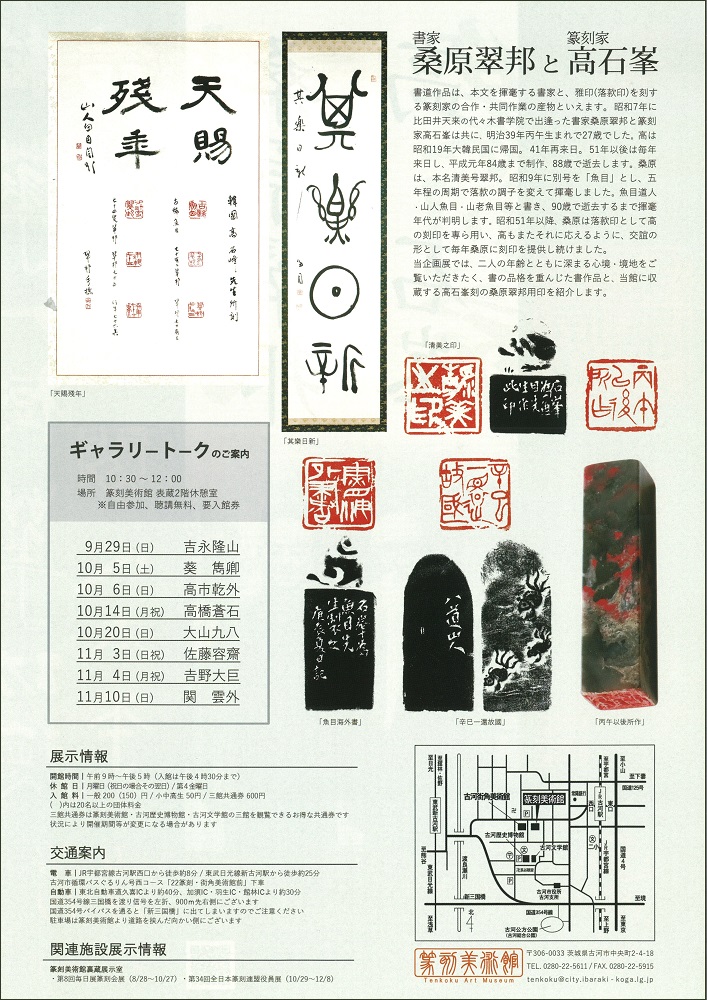 書家
桑原翠邦と
篆刻家
高石峯
書道作品は、本文を揮毫する書家と、雅印(落款印)を刻す
る篆刻家の合作・共同作業の産物といえます。 昭和7年に
比田井天来の代々木書学院で出逢った書家桑原翠邦と篆刻
家高石峯は共に、明治39年丙午生まれで27歳でした。高は
昭和19年大韓民国に帰国。41年再来日。51年以後は毎年
来日し、平成元年84歳まで制作、88歳で逝去します。桑原
は、本名清美号翠邦。昭和9年に別号を「魚目」とし、五
年程の周期で落款の調子を変えて揮毫しました。魚目道人
・山人魚目・山老魚目等と書き、90歳で逝去するまで揮毫
年代が判明します。昭和51年以降、桑原は落款印として高
の刻印を専ら用い、高もまたそれに応えるように、交誼の
形として毎年桑原に刻印を提供し続けました。
当企画展では、二人の年齢とともに深まる心境・境地をご
覧いただきたく、書の品格を重んじた書作品と、当館に収
蔵する高石峯刻の桑原翠邦用印を紹介します。
天賜
殘年
「天賜残年」
其樂日新
「其樂日新」
「清美之印」
ギャラリートークのご案内
時間 10：30 ～ 12：00
場所 篆刻美術館 表蔵2階休憩室
※自由参加、聴講無料、要入館券
9月29日（日） 吉永隆山
10月 5日（土） 葵 雋卿
10月 6日（日） 高市乾外
10月14日（月祝） 高橋蒼石
10月20日（日） 大山九八
11月 3日（日祝） 佐藤容齋
11月 4日（月祝） 吉野大巨
11月10日（日） 関 雲外
八道山人
「魚目海外書」
「辛巳一還故國」
「丙午以後所作」
展示情報
開館時間｜午前9時～午後5時（入館は午後4時30分まで）
休 館 日｜月曜日（祝日の場合その翌日）/ 第4金曜日
入 館 料｜一般 200（150）円 / 小中高生 50円 / 三館共通券 600円
（ ）内は20名以上の団体料金
三館共通券は篆刻美術館・古河歴史博物館・古河文学館の三館を観覧できるお得な共通券です
状況により開催期間等が変更になる場合があります
交通案内
電 車｜JR宇都宮線古河駅西口から徒歩約8分 / 東武日光線新古河駅から徒歩約25分
古河市循環バスぐるりん号西コース「22篆刻・街角美術館前」下車
自動車｜東北自動車道久喜ICより約40分、加須IC・羽生IC・館林ICより約30分
国道354号線三国橋を渡り信号を左折、900m先右側にございます
国道354号バイパスを通ると「新三国橋」に出てしまいますのでご注意ください
駐車場は篆刻美術館より道路を挟んだ向かい側にございます
関連施設展示情報
篆刻美術館裏蔵展示室
・第8回毎日展篆刻会展（8/28～10/27）・第34回全日本篆刻連盟役員展（10/29～12/8）
至日光
至館林・佐野
至宇都宮
至小山
至下妻
国道125号
古河街角美術館
篆刻美術館
西口
東口
JR古河駅
東武新古河駅
古河歴史博物館
古河文学館
渡良瀬川
JR宇都宮線
国道4号
至熊谷
東武日光線
新三国橋
古河市役所
古河支所
至境
北
国道354号
古河公方公園
（古河総合公園）
至浅草
至上野
至東京
篆刻美術館
Tenkoku Art Museum
〒306-0033 茨城県古河市中央町2-4-18
TEL. 0280-22-5611 / FAX. 0280-22-5915
tenkoku@city.ibaraki-koga.lg.jp